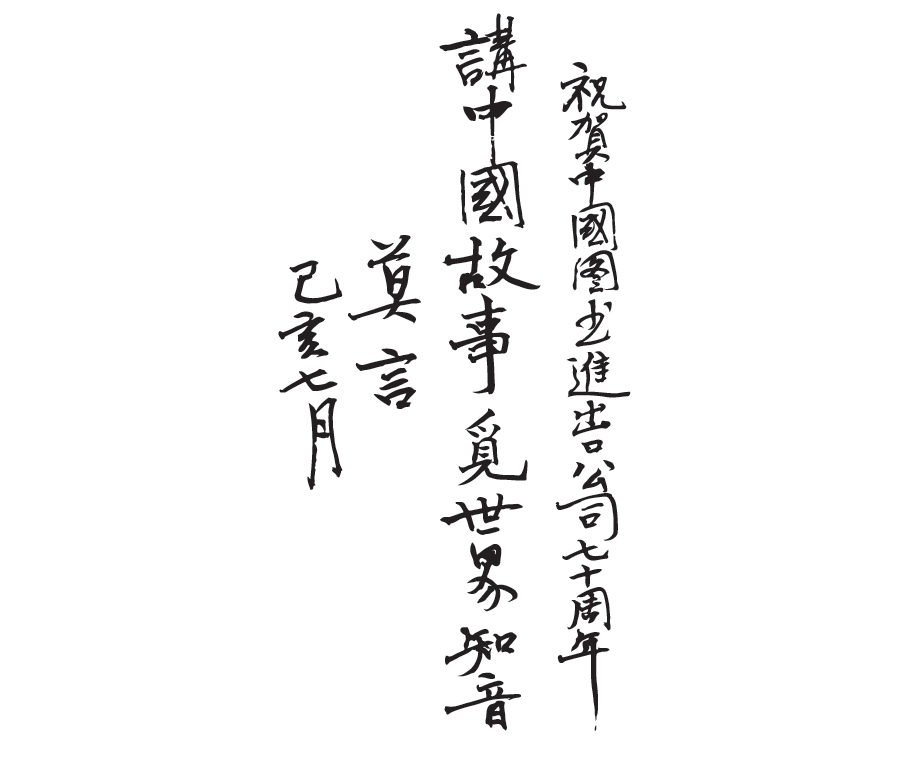 祝賀中國图书進出口公司七十周年
講中國故事覓世界知音
莫言
己亥七月